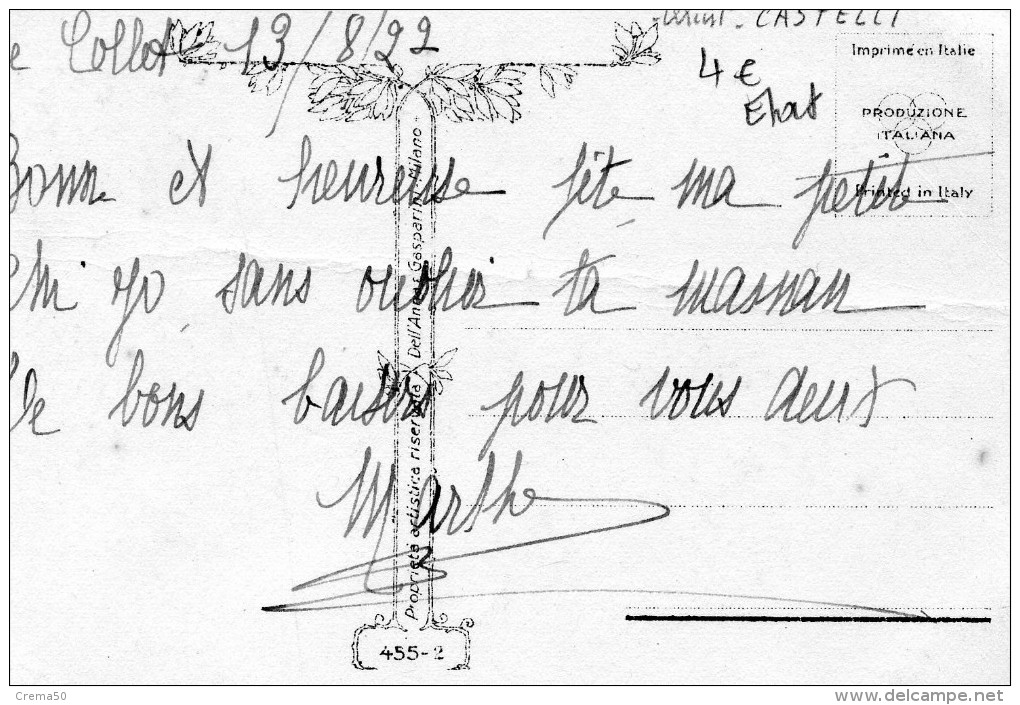 Collet 13/8/22
CASTELLI
4 €
Etat
Imprimé en Italie
PRODUZIONE
ITALIANA
Printed in Italy
Bonne et heureuse fête ma petite
sans oublier ta maman
De bons baisers pour vous deux
Marthe
Proprietà artistica riservata Dell'Anna e Gasparini - Milano
455-2
Crema50
www.delcampe.net